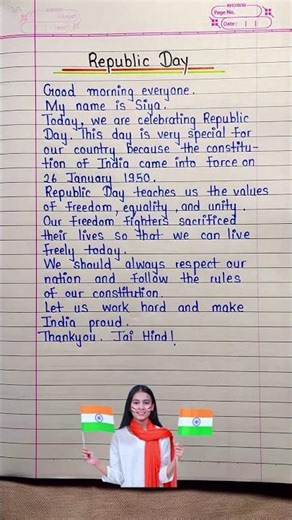 Page No.
Date:
Republic Day
Good morning everyone.
My name is Siya.
Today, we are celebrating Republic
Day. This day is very special for
our country because the constitu-
tion of India came into force on
26 January 1950.
Republic Day teaches us the values
of freedom, equality, and unity.
Our freedom fighters sacrificed
their lives so that we can live
freely today.
We should always respect our
nation and follow the rules
of our constitution.
Let us work hard and make
India proud.
Thankyou. Jai Hind!